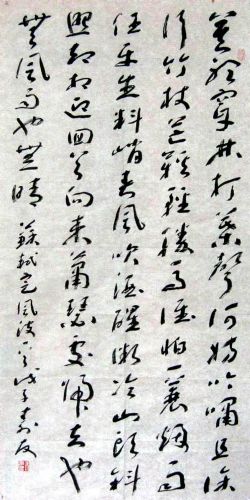 莫聽穿林打葉聲何妨吟嘯且徐
行竹杖芒鞋輕勝馬誰怕一蓑烟雨
任平生料峭春風吹酒醒微冷山頭斜
照却相迎回首向來蕭瑟處歸去也
無風雨也無晴 蘇軾定風波一首戊子